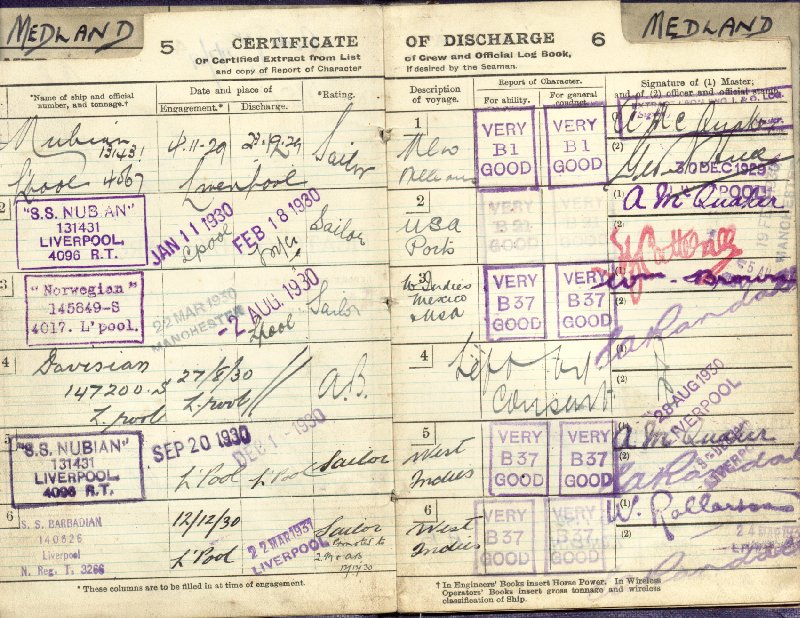 MEDLAND
5 CERTIFICATE
or Certified Extract from List
and copy of Report of Character
*Name of ship and official
number, and tonnage.†
Date and place of
Engagement.* Discharge.
*Rating.
Nubian
131431
L'pool 4067
4.11.29
Liverpool
Sailor
2
"S.S. NUBIAN"
131431
LIVERPOOL,
4096 R.T.
JAN 11 1930
L'pool
FEB 18 1930
M/cr
Sailor
3
"Norwegian"
145849-S
4017. L'pool.
22 MAR 1930
MANCHESTER
-2 AUG 1930
L'pool
Sailor
4
Davisian
147200.S
L.pool
27/8/30
L.pool
A.B.
5
"S.S. NUBIAN"
131431
LIVERPOOL,
4096 R.T.
SEP 20 1930
L'Pool
DEC 1 - 1930
L'Pool
Sailor
6
S. S. BARBADIAN
140626
Liverpool
N. Reg. T. 3266
12/12/30
L'Pool
22 MAR 1931
LIVERPOOL
Sailor
*These columns are to be filled in at time of engagement.
MEDLAND
OF DISCHARGE 6
of Crew and Official Log Book,
if desired by the Seaman.
Description
of voyage.
Report of Character.
For ability. For general
conduct.
Signature of (1) Master;
and of (2) officer and official stamp.
1
New
VERY
B1
GOOD
VERY
B1
GOOD
(1)
(2)
30 DEC 1929
2
USA
Ports
VERY
GOOD
VERY
GOOD
(1)
A McQuaker
(2)
MANCHESTER
3
W Indies
Mexico
& USA
VERY
B37
GOOD
VERY
B37
GOOD
(1)
Wm. Brown
(2)
4
Left by
Consent
(1)
(2)
28 AUG 1930
LIVERPOOL
5
West
Indies
VERY
B37
GOOD
VERY
B37
GOOD
(1)
A McQuaker
(2)
LIVERPOOL
6
West
Indies
VERY
GOOD
VERY
B37
GOOD
(1)
(2)
† In Engineers' Books insert Horse Power. In Wireless
Operators' Books insert gross tonnage and wireless
classification of Ship.